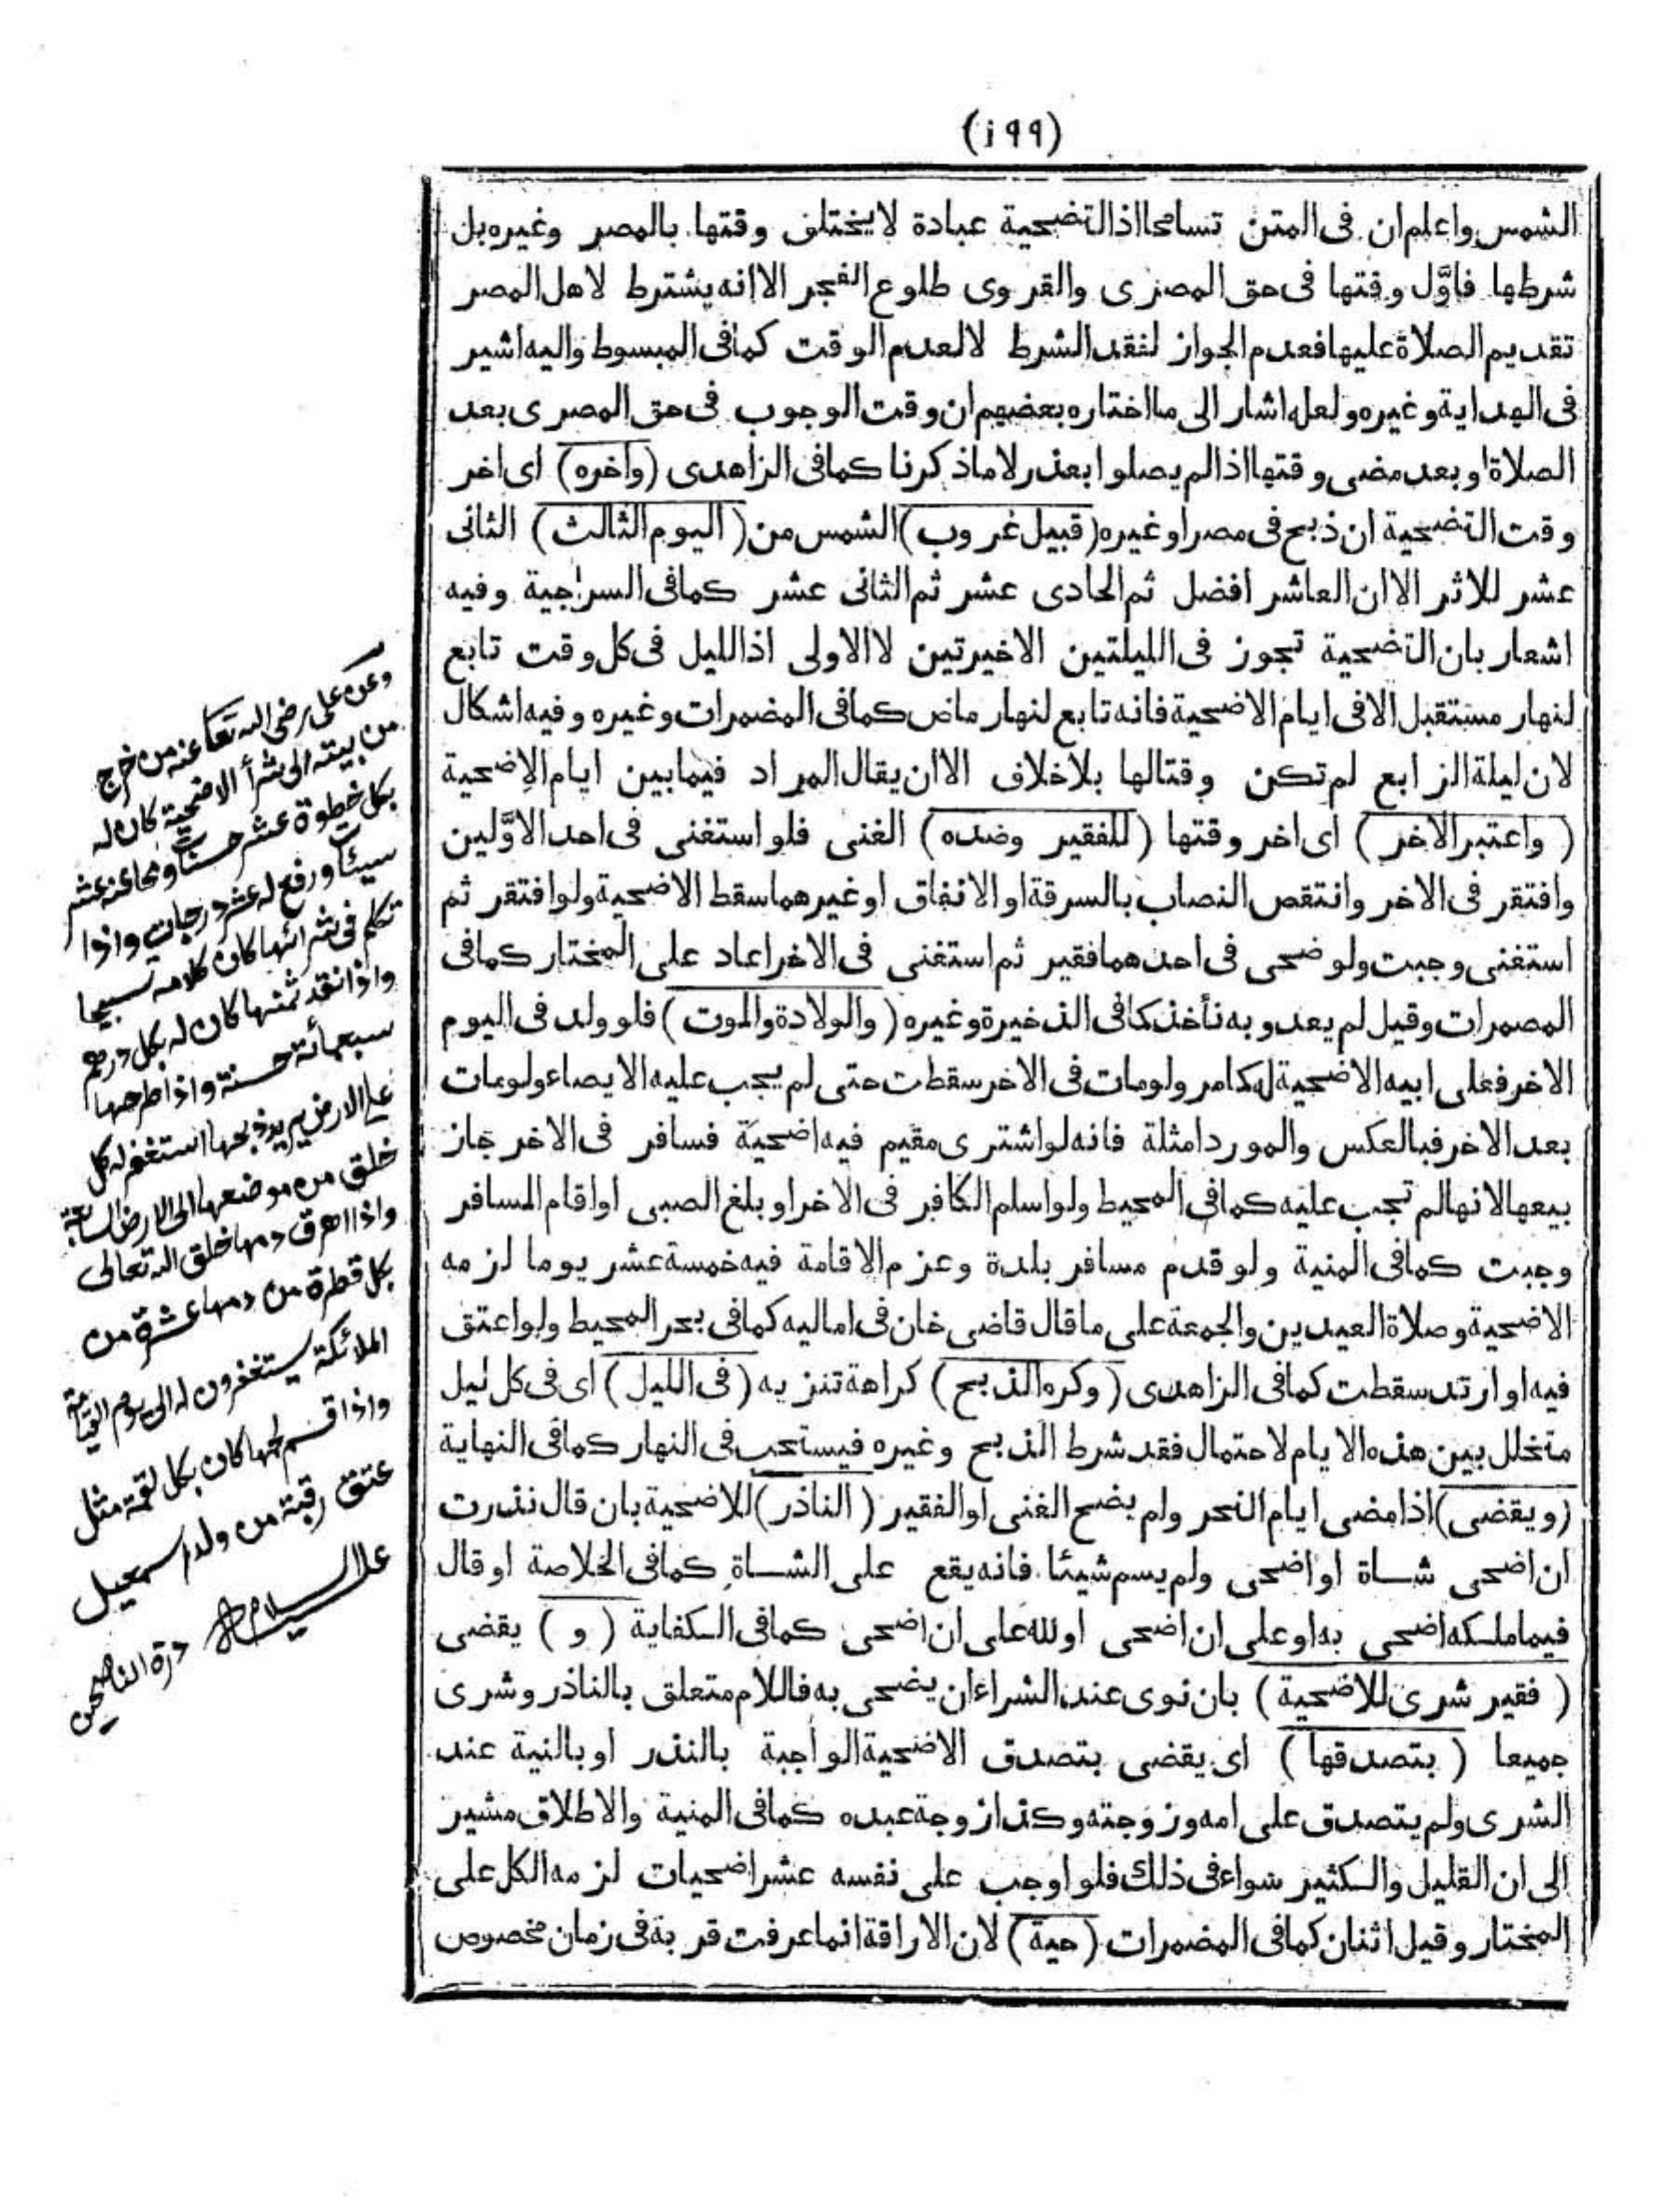 (١٩٩)
الشمس واعلم ان فى المتن تسامحا اذ التضحية عبادة لا يختلف وقتها بالمصر وغيره بل
شرطها فاوَّل وقتها فى حق المصرى والقروى طلوع الفجر الا انه يشترط لاهل المصر
تقديم الصلاة عليها فعدم الجواز لفقد الشرط لا لعدم الوقت كما فى المبسوط واليه اشير
فى الهداية وغيره ولعله اشار الى ما اختاره بعضهم ان وقت الوجوب فى حق المصرى بعد
الصلاة او بعد مضى وقتها اذا لم يصلوا بعذر لا ما ذكرنا كما فى الزاهدى (وآخره) اى اخر
وقت التضحية ان ذبح فى مصر او غيره (قبيل غروب) الشمس من (اليوم الثالث) الثانى
عشر للاثر الا ان العاشر افضل ثم الحادى عشر ثم الثانى عشر كما فى السراجية وفيه
اشعار بان التضحية تجوز فى الليلتين الاخيرتين لا الاولى اذ الليل فى كل وقت تابع
لنهار مستقبل الا فى ايام الاضحية فانه تابع لنهار ماض كما فى المضمرات وغيره وفيه اشكال
لان ليلة الرابع لم تكن وقتا لها بلا خلاف الا ان يقال المراد فيما بين ايام الاضحية
(واعتبر الآخر) اى اخر وقتها (للفقير وضده) الغنى فلو استغنى فى احد الاوَّلين
وافتقر فى الاخر وانتقص النصاب بالسرقة او الانفاق او غيرهما سقط الاضحية ولو افتقر ثم
استغنى وجبت ولو ضحى فى احدهما فقير ثم استغنى فى الاخر اعاد على المختار كما فى
المصمرات وقيل لم يعد وبه نأخذ كما فى الذخيرة وغيره (والولادة والموت) فلو ولد فى اليوم
الاخر فعلى ابيه الاضحية له كما مر ولو مات فى الاخر سقطت حتى لم يجب عليه الايصاء ولو مات
بعد الاخر فبالعكس والمورد امثلة فانه لو اشترى مقيم فيه اضحية فسافر فى الاخر جاز
بيعها لانها لم تجب عليه كما فى المحيط ولو اسلم الكافر فى الاخر او بلغ الصبى او اقام المسافر
وجبت كما فى المنية ولو قدم مسافر بلدة وعزم الاقامة فيه خمسة عشر يوما لزمه
الاضحية وصلاة العيدين والجمعة على ما قال قاضى خان فى اماليه كما فى بحر المحيط ولو اعتق
فيه او ارتد سقطت كما فى الزاهدى (وكره الذبح) كراهة تنزيه (فى الليل) اى فى كل ليل
متخلل بين هذه الايام لاحتمال فقد شرط الذبح وغيره فيستحب فى النهار كما فى النهاية
(ويقضى) اذا مضى ايام النحر ولم يضح الغنى او الفقير (الناذر) للاضحية بان قال نذرت
ان اضحى شاة او اضحى ولم يسم شيئا فانه يقع على الشاة كما فى الخلاصة او قال
فيما ملكه اضحى به او على ان اضحى او لله على ان اضحى كما فى الكفاية (و) يقضى
(فقير شرى للاضحية) بان نوى عند الشراء ان يضحى به فاللام متعلق بالناذر وشرى
جميعا (بتصدقها) اى يقضى بتصدق الاضحية الواجبة بالنذر او بالنية عند
الشرى ولم يتصدق على امه وزوجته وكذا زوجة عبده كما فى المنية والاطلاق مشير
الى ان القليل والكثير سواء فى ذلك فلو اوجب على نفسه عشر اضحيات لزمه الكل على
المختار وقيل اثنان كما فى المضمرات (حية) لان الاراقة انما عرفت قربة فى زمان مخصوص
وعن على رضى الله تعا عنه من خرج
من بيته الى شرأ الاضحية كان له
بكل خطوة عشر حسنات ومحا عنه عشر
سيئات ورفع له عشر درجات واذا
تكلم فى شرائها كان كلامه تسبيحا
واذا نقد ثمنها كان له بكل درهم
سبعمائة حسنة واذا طرحها
على الارض يريد ذبحها استغفر له كل
خلق من موضعها الى الارض السابعة
واذا اهرق دمها خلق الله تعالى
بكل قطرة من دمها عشرة من
الملائكة يستغفرون له الى يوم القيامة
واذا قسم لحمها كان بكل لقمة مثل
عتق رقبة من ولد اسمعيل
عليه السلام درة الناصحين